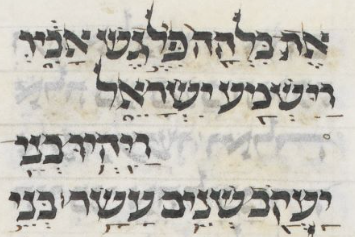 אֶת בִּלְהָה פִּלֶגֶשׁ אָבִיו
וַיִּשְׁמַע יִשְׂרָאֵל
וַיִּהְיוּ בְנֵי
יַעֲקֹב שְׁנֵים עָשָׂר בְּנֵי